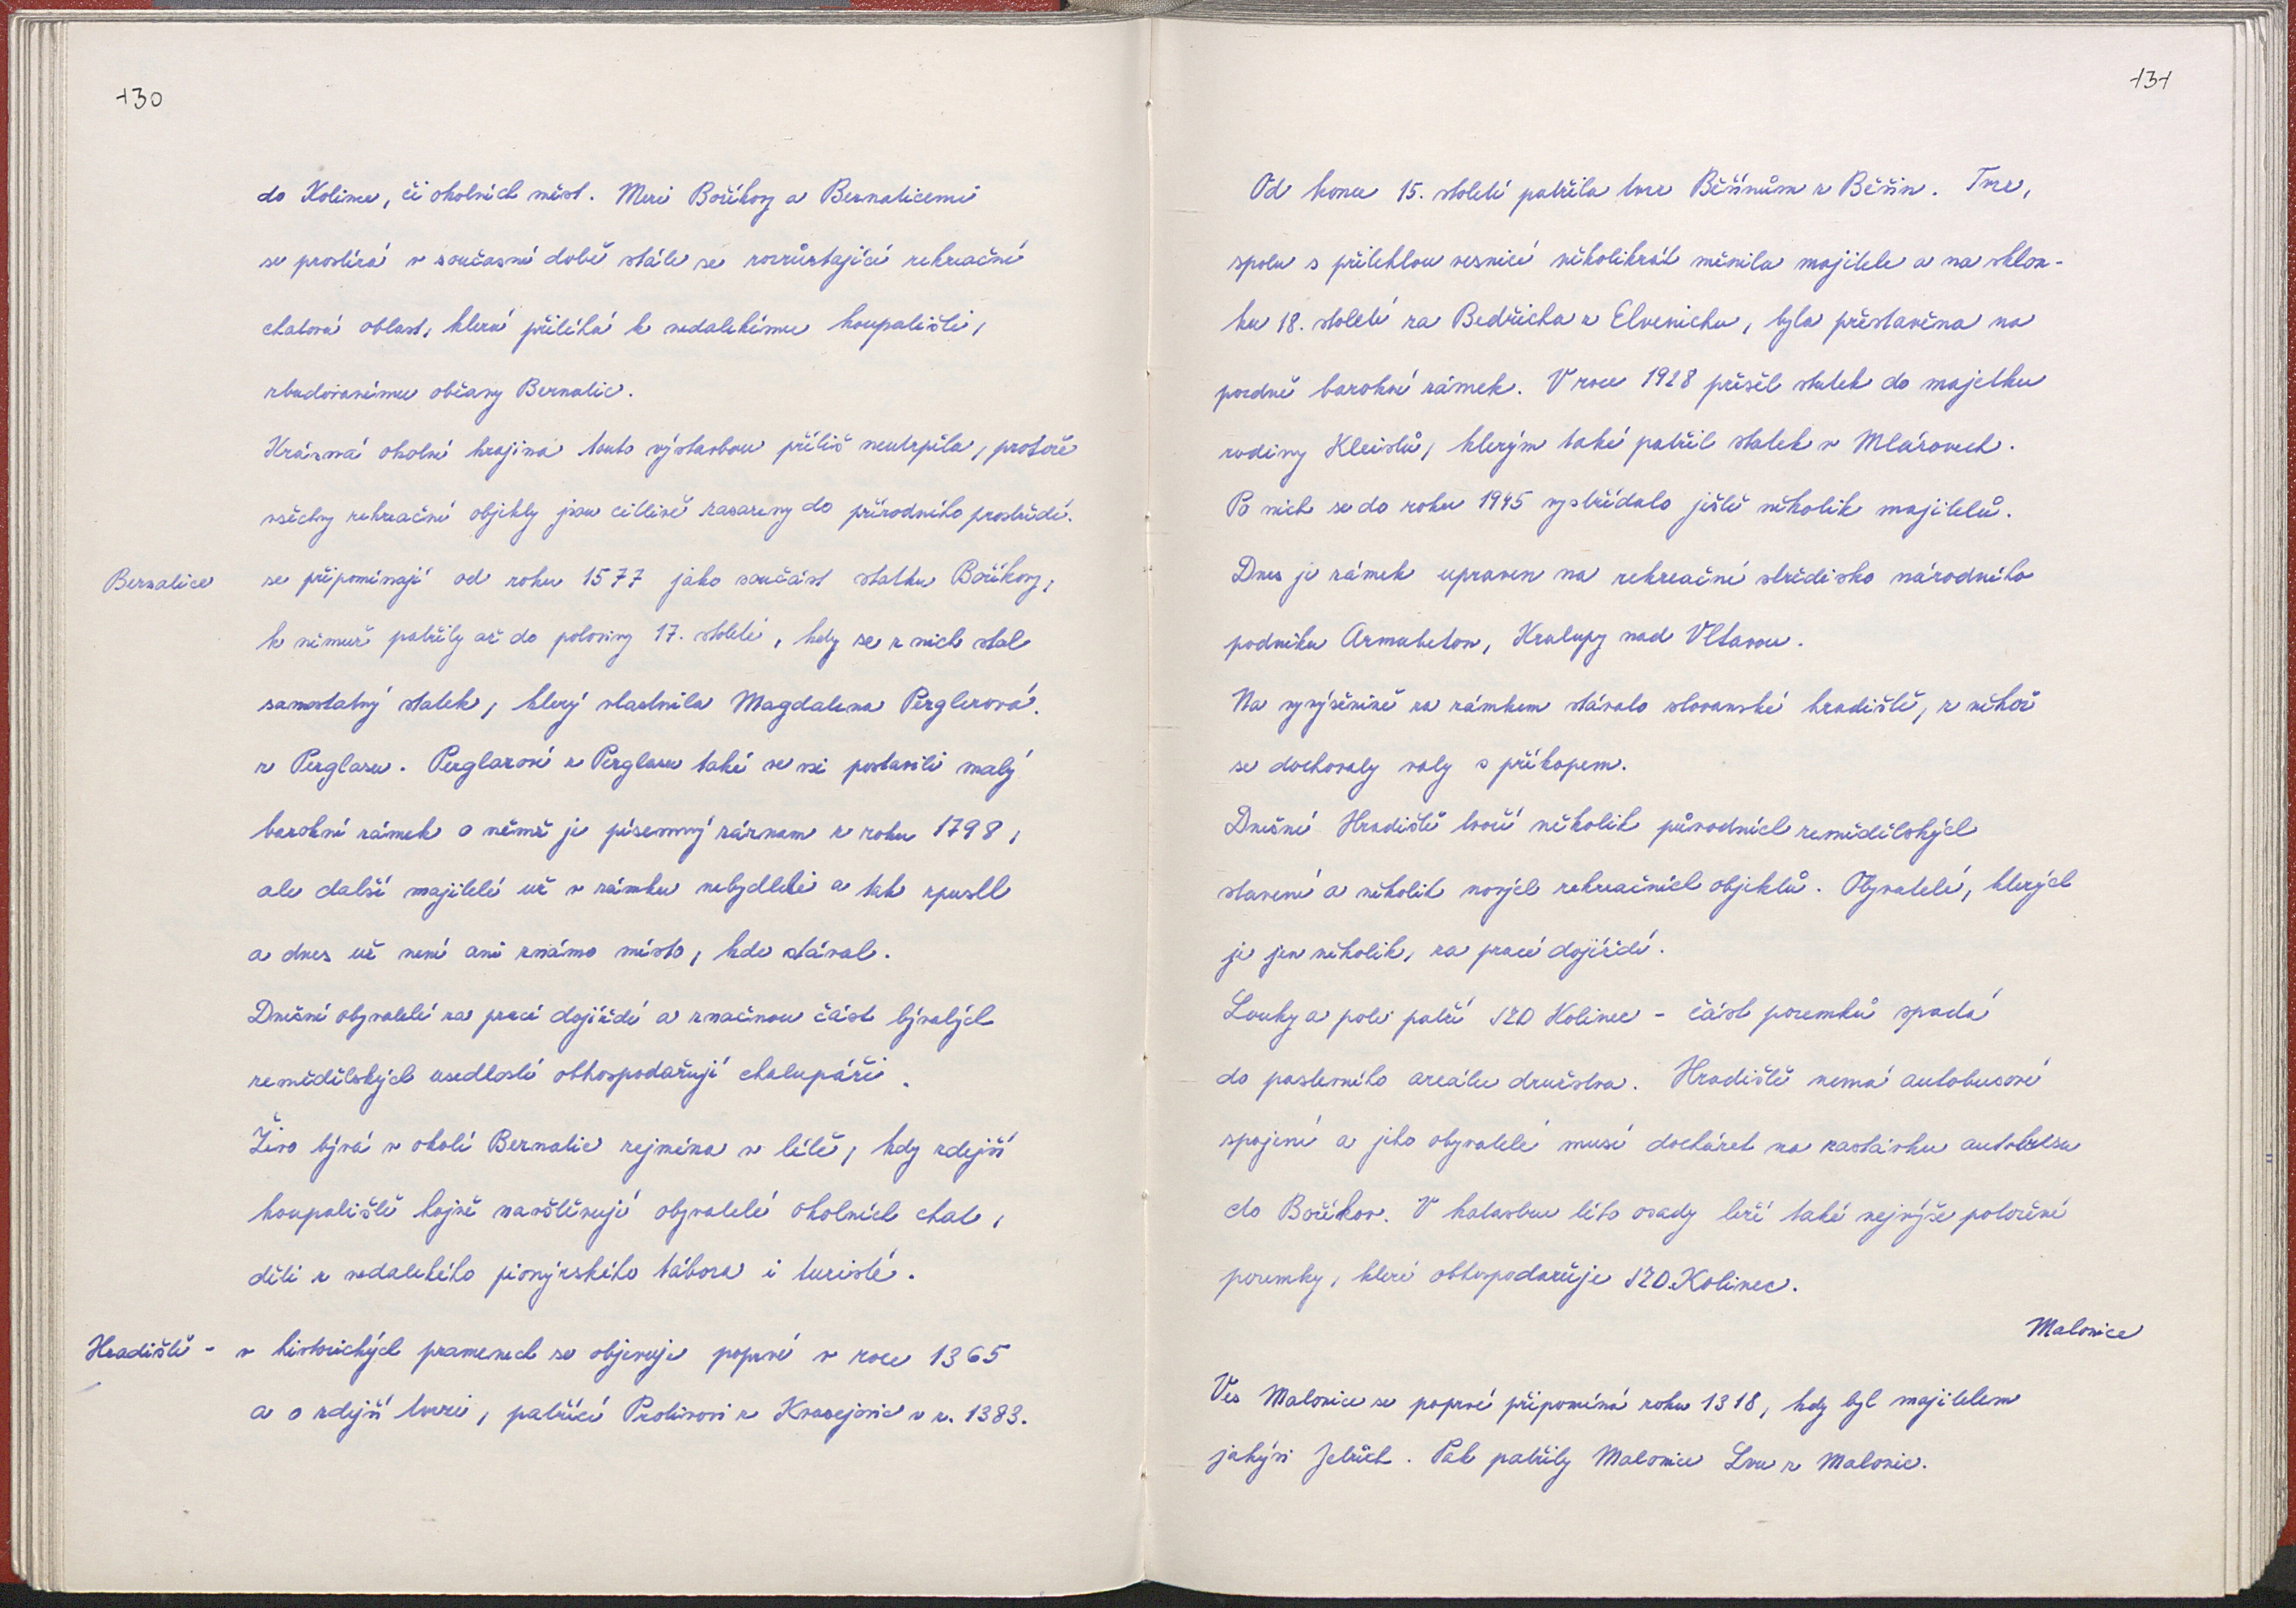 130
do Kolince, či okolních měst. Mezi Boříkovy a Bernaticemi
se prostírá v současné době stále se rozrůstající rekreační
chatová oblast, která přiléhá k nedalekému koupališti,
zbudovanému občany Bernatic.
Krásná okolní krajina touto výstavbou příliš neutrpěla, protože
všechny rekreační objekty jsou citlivě zasazeny do přírodního prostředí.
Bernatice se připomínají od roku 1577 jako součást statku Boříkovy,
k němuž patřily až do poloviny 17. století, kdy se z nich stal
samostatný statek, který vlastnila Magdalena Perglerová.
z Perglasu. Perglarové z Perglasu také ve vsi postavili malý
barokní zámek o němž je písemný záznam z roku 1798,
ale další majitelé už v zámku nebydleli a tak zpustl
a dnes už není ani známo místo, kde stával.
Dnešní obyvatelé za prací dojíždí a značnou část bývalých
zemědělských usedlostí obhospodařují chalupáři.
Živo bývá v okolí Bernatic zejména v létě, kdy zdejší
koupaliště hojně navštěvují obyvatelé okolních chat,
děti z nedalekého pionýrského tábora i turisté.
Hradiště - v historických pramenech se objevuje poprvé v roce 1365
a o zdejší tvrzi, patřící Protivovi z Kvasejovic v r. 1383.
131
Od konce 15. století patřila tvrz Běšínům z Běšin. Tvrz,
spolu s přilehlou vesnicí několikrát měnila majitele a na sklon-
ku 18. století za Bedřicha z Elvenichu, byla přestavěna na
pozdně barokní zámek. V roce 1928 přešel statek do majetku
rodiny Kleistů, kterým také patřil statek v Mlázovech.
Po nich se do roku 1945 vystřídalo ještě několik majitelů.
Dnes je zámek upraven na rekreační středisko národního
podniku Armabeton, Kralupy nad Vltavou.
Na vyvýšenině za zámkem stávalo slovanské hradiště, z něhož
se dochovaly valy s příkopem.
Dnešní Hradiště tvoří několik původních zemědělských
stavení a několik nových rekreačních objektů. Obyvatelé, kterých
je jen několik, za prací dojíždí.
Louky a pole patří JZD Kolinec - část pozemků spadá
do pastevního areálu družstva. Hradiště nemá autobusové
spojení a jeho obyvatelé musí docházet na zastávku autobusu
do Boříkov. V katastru této osady leží také nejvýše položené
pozemky, které obhospodařuje JZD.Kolinec.
Malonice
Ves Malonice se poprvé připomíná roku 1318, kdy byl majitelem
jakýsi Jetřich. Pak patřily Malonice Lvu z Malonic.